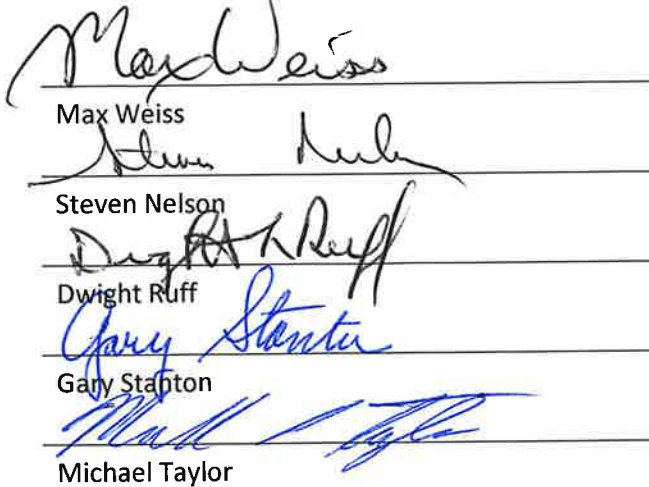 Max Weiss
Max Weiss
Steven Nelson
Steven Nelson
Dwight L Ruff
Dwight Ruff
Gary Stanton
Gary Stanton
Michael Taylor